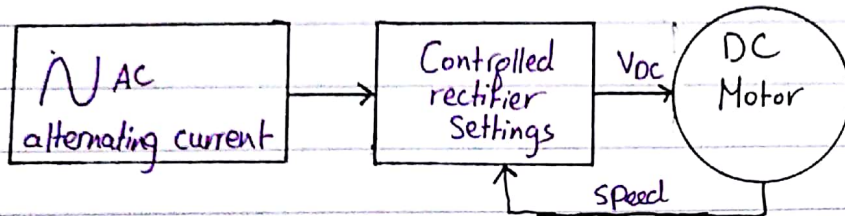 AC
alternating current
Controlled
rectifier
Settings
VDC
DC
Motor
speed